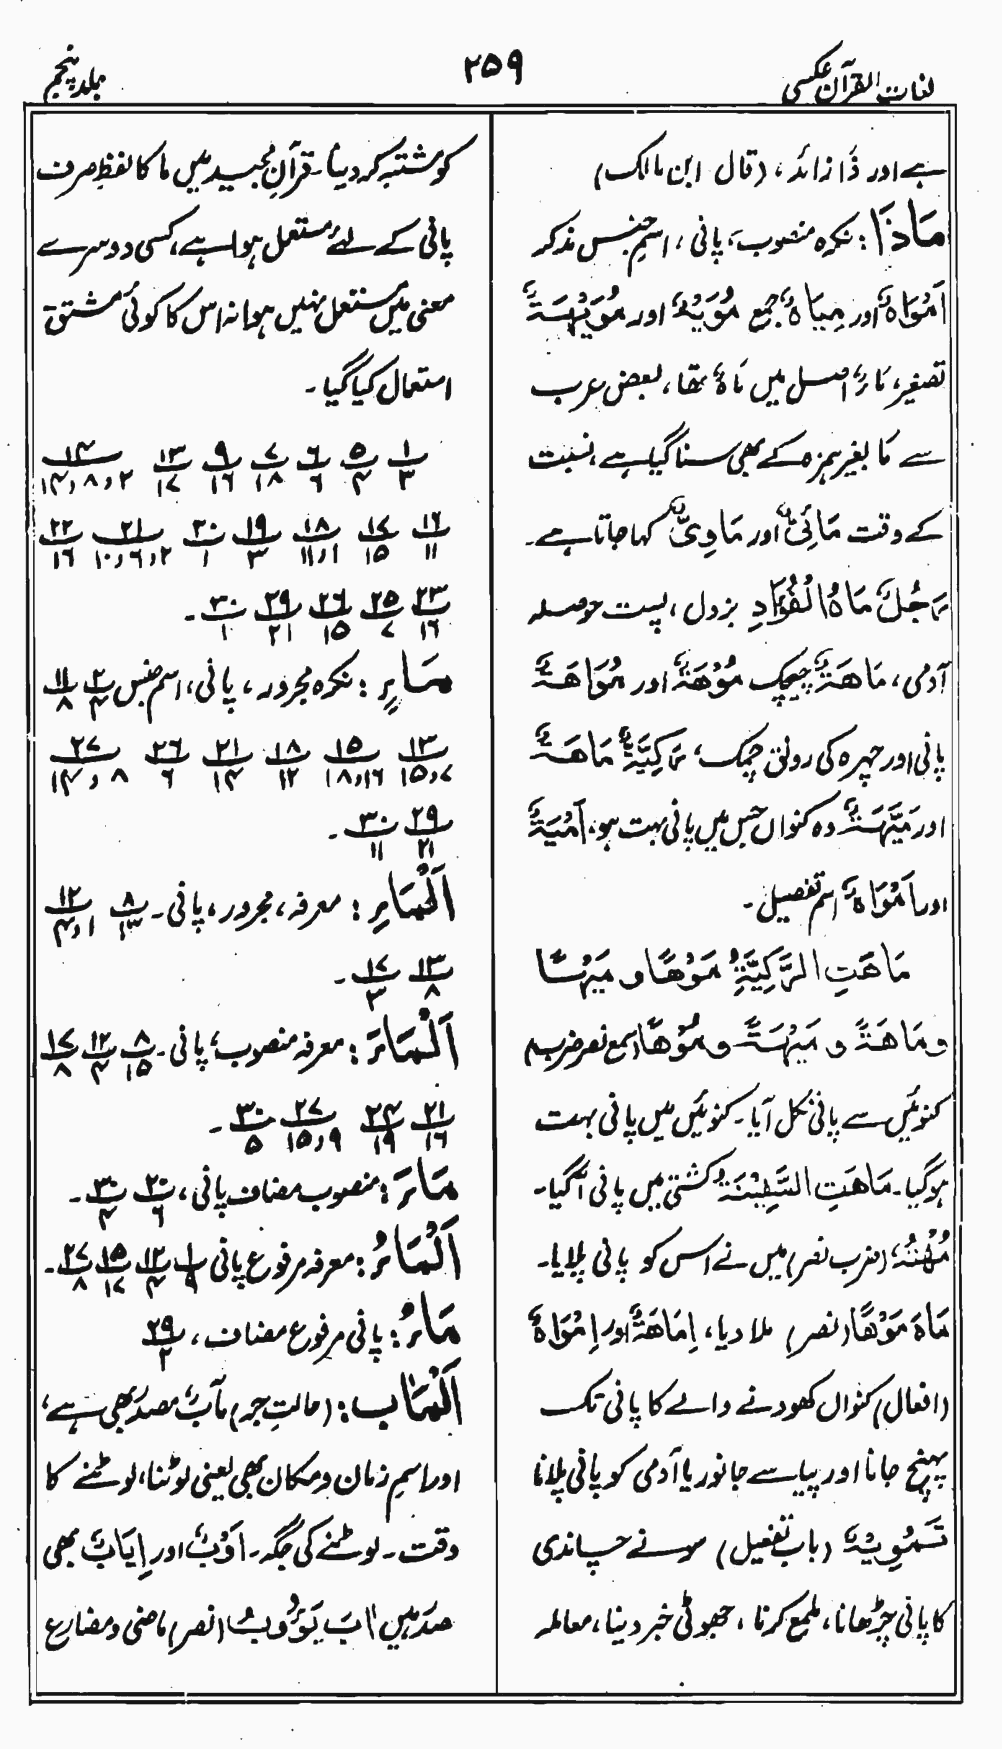 لغات القرآن عکسی
۲۵۹
جلد پنجم
ہے اور ذَا زائد، (قال ابن مالک)
مَاذَا: نکرہ منصوب، پانی، اسمِ جنس مذکر
اَمْوَاہٌ اور مِیَاہٌ جمع مُوَیْہٌ اور مُوَیْہَۃٌ
تصغیر، مَاءٌ اصل میں مَاہٌ تھا، بعض عرب
سے مَا بغیر ہمزہ کے بھی سنا گیا ہے، نسبت
کے وقت مَائِیٌّ اور مَاوِیٌّ کہا جاتا ہے۔
رَجُلٌ مَاہُ الْفُؤَادِ بزدل، پست حوصلہ
آدمی، مَاھَۃٌ چیچک مُوْھَۃٌ اور مُوَاھَۃٌ
پانی اور چہرہ کی رونق چمک، رَکِیَّۃٌ مَاھَۃٌ
اور مَیِّہَۃٌ وہ کنواں جس میں پانی بہت ہو، اَمْیَہُ
اور اَمْوَاہٌ اسم تفصیل۔
مَاھَتِ الرَّکِیَّۃُ مَوْھًا و مَیْہًا
و مَاھَۃً و مَیْہَۃً و مُؤُھًا سمع نصر ضرب
کنوئیں سے پانی نکل آیا۔ کنوئیں میں پانی بہت
ہو گیا۔ مَاھَتِ السَّفِیْنَۃُ کشتی میں پانی آ گیا۔
مُھْتُہٗ (ضرب نصر) میں نے اس کو پانی پلایا۔
مَاہَ مَوْھًا (نصر) ملا دیا، اِمَاھَۃٌ اور اِمْوَاہٌ
(افعال) کنواں کھودنے والے کا پانی تک
پہنچ جانا اور پیاسے جانور یا آدمی کو پانی پلانا
تَمْوِیْہٌ (باب تفعیل) سونے چاندی
کا پانی چڑھانا، ملمع کرنا، جھوٹی خبر دینا، معاملہ
کو مشتبہ کر دینا۔ قرآنِ مجید میں ما کا لفظ صرف
پانی کے لئے مستعمل ہوا ہے، کسی دوسرے
معنی میں مستعمل نہیں ہوا نہ اس کا کوئی مشتق
استعمال کیا گیا۔
۱/۳ ۵/۴ ۶/۶ ۷/۱۸ ۹/۱۶ ۱۳/۱۷ ۱۴/۲،۸،۱۴
۱۶/۱۱ ۱۷/۱۵ ۱۸/۱،۱۱ ۱۹/۳ ۲۰/۱ ۲۱/۲،۶،۱۰ ۲۲/۱۶
۲۳/۱۶ ۲۵/۷ ۲۶/۱۵ ۲۹/۲۱ ۳۰/۱۔
مَاءٍ: نکرہ مجرور، پانی، اسم جنس ۲/۴ ۱۱/۸
۱۳/۷،۱۵ ۱۵/۱۶،۱۸ ۱۸/۱۲ ۲۱/۱۴ ۲۶/۶ ۲۷/۸،۱۴
۲۹/۲۱ ۳۰/۱۱۔
اَلْمَاءِ: معرفہ، مجرور، پانی۔ ۸/۱۳ ۱۲/۱،۴
۱۳/۸ ۱۷/۳۔
اَلْمَاءَ: معرفہ منصوب، پانی۔ ۸/۱۵ ۱۲/۴ ۱۷/۸
۲۱/۱۶ ۲۴/۱۹ ۲۷/۹،۱۵ ۳۰/۵۔
مَاءَ: منصوب مضاف پانی، ۲۰/۶ ۳۰/۴۔
اَلْمَاءُ: معرفہ مرفوع پانی ۱/۹ ۱۲/۴ ۱۵/۱۷ ۲۷/۸۔
مَاءُ: پانی مرفوع مضاف، ۲۹/۲
اَلْمَاٰب: (حالتِ جر) مآبٌ مصدر بھی ہے،
اور اسمِ زمان و مکان بھی یعنی لوٹنا، لوٹنے کا
وقت۔ لوٹنے کی جگہ۔ اَوْبٌ اور اِیَابٌ بھی
مصدر ہیں اٰبَ یَؤُوْبُ (نصر) ماضی و مضارع